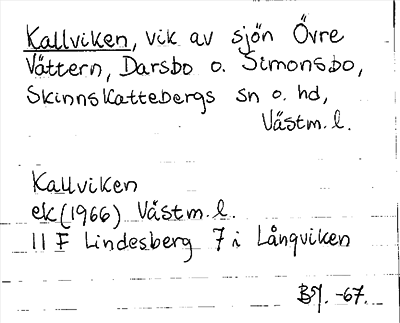 Kallviken, vik av sjön Övre
Vättern, Darsbo o. Simonsbo,
Skinnskattebergs sn o. hd,
Västm. l.
Kallviken
ek (1966) Västm. l.
11 F Lindesberg 7 i Långviken
-67.